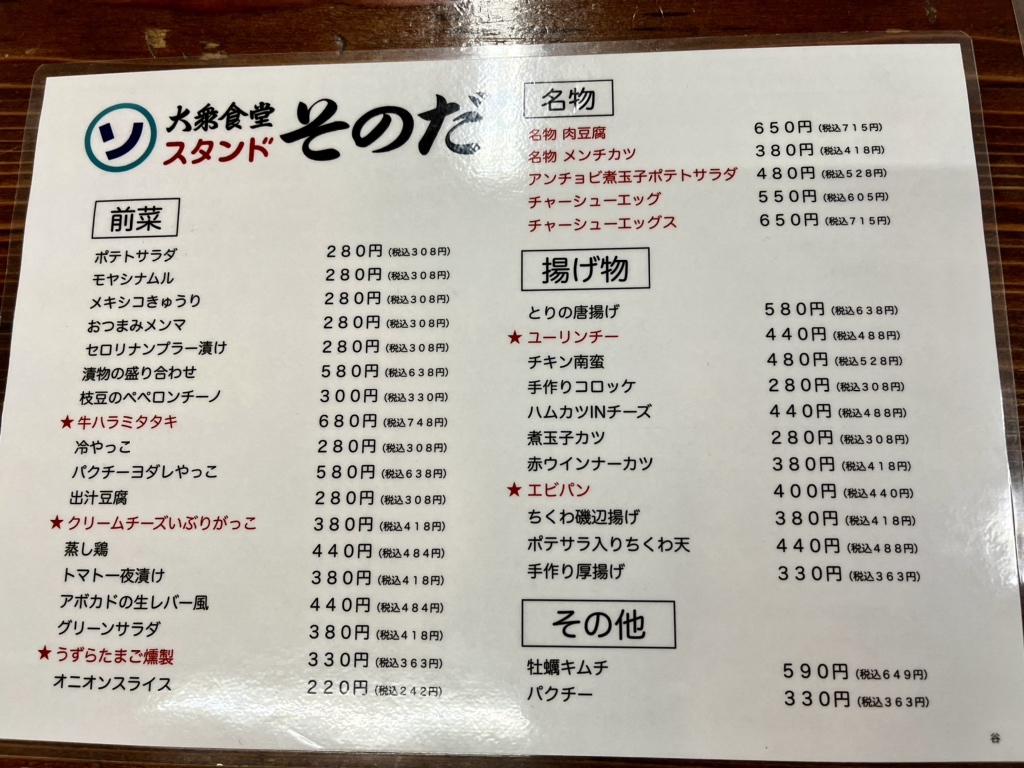 ソ 大衆食堂 スタンド そのだ
前菜
ポテトサラダ 280円(税込308円)
モヤシナムル 280円(税込308円)
メキシコきゅうり 280円(税込308円)
おつまみメンマ 280円(税込308円)
セロリナンプラー漬け 280円(税込308円)
漬物の盛り合わせ 580円(税込638円)
枝豆のペペロンチーノ 300円(税込330円)
★牛ハラミタタキ 680円(税込748円)
冷やっこ 280円(税込308円)
パクチーヨダレやっこ 580円(税込638円)
出汁豆腐 280円(税込308円)
★クリームチーズいぶりがっこ 380円(税込418円)
蒸し鶏 440円(税込484円)
トマト一夜漬け 380円(税込418円)
アボカドの生レバー風 440円(税込484円)
グリーンサラダ 380円(税込418円)
★うずらたまご燻製 330円(税込363円)
オニオンスライス 220円(税込242円)
名物
名物 肉豆腐 650円(税込715円)
名物 メンチカツ 380円(税込418円)
アンチョビ煮玉子ポテトサラダ 480円(税込528円)
チャーシューエッグ 550円(税込605円)
チャーシューエッグス 650円(税込715円)
揚げ物
とりの唐揚げ 580円(税込638円)
★ユーリンチー 440円(税込488円)
チキン南蛮 480円(税込528円)
手作りコロッケ 280円(税込308円)
ハムカツINチーズ 440円(税込488円)
煮玉子カツ 280円(税込308円)
赤ウインナーカツ 380円(税込418円)
★エビパン 400円(税込440円)
ちくわ磯辺揚げ 380円(税込418円)
ポテサラ入りちくわ天 440円(税込488円)
手作り厚揚げ 330円(税込363円)
その他
牡蠣キムチ 590円(税込649円)
パクチー 330円(税込363円)
谷